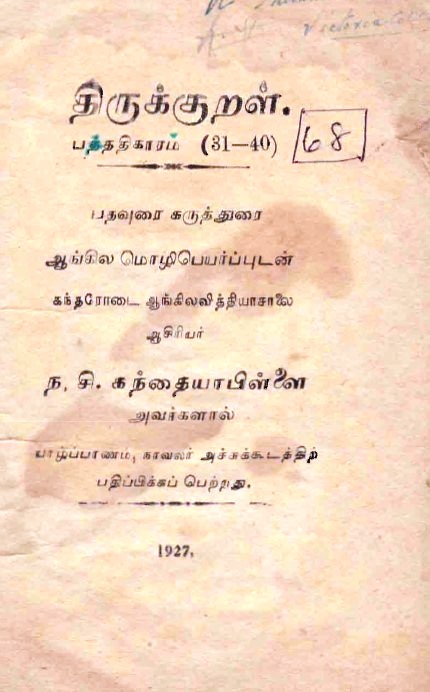 Victoria
திருக்குறள்.
பத்ததிகாரம் (31—40)
68
பதவுரை கருத்துரை
ஆங்கில மொழிபெயர்ப்புடன்
கந்தரோடை ஆங்கிலவித்தியாசாலை
ஆசிரியர்
ந, சி. கந்தையாபிள்ளை
அவர்களால்
யாழ்ப்பாணம், நாவலர் அச்சுக்கூடத்திற்
பதிப்பிக்கப் பெற்றது.
1927,